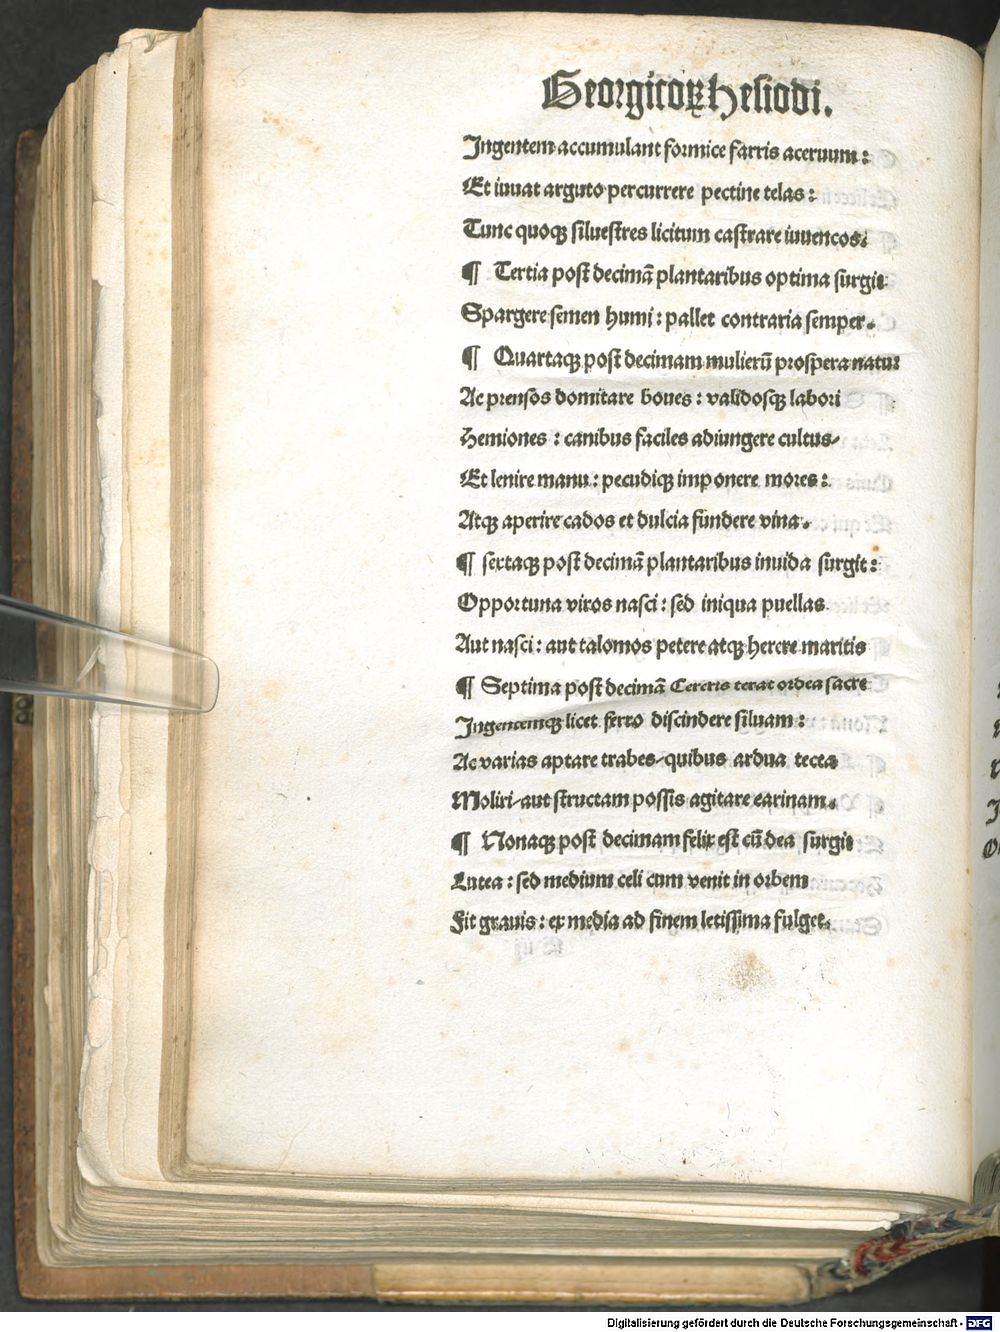 Georgicoꝝ Hesiodi.
Ingentem accumulant formice farris aceruum:
Et iuuat arguto percurrere pectine telas:
Tunc quoqꝫ siluestres licitum castrare iuuencos:
¶ Tertia post decimā plantaribus optima surgit
Spargere semen humi: pallet contraria semper.
¶ Quartaqꝫ post decimam mulierū prospera natur
Ac prensos domitare boues: validosqꝫ labori
Hemiones: canibus faciles adiungere cultus/
Et lenire manu: pecudiqꝫ imponere mores:
Atqꝫ aperire cados et dulcia fundere vina.
¶ sextaqꝫ post decimā plantaribus inuida surgit:
Opportuna viros nasci: sed iniqua puellas
Aut nasci: aut talomos petere atqꝫ herere maritis
¶ Septima post decimā Cereris terat ordea sacre
Ingentemqꝫ licet ferro discindere siluam:
Ac varias aptare trabes/quibus ardua tecta
Moliri/aut structam possis agitare carinam.
¶ Nonaqꝫ post decimam felix est cū dea surgit
Lutea: sed medium celi cum venit in orbem
Fit grauis: ex media ad finem letissima fulget.
Digitalisierung gefördert durch die Deutsche Forschungsgemeinschaft - DFG